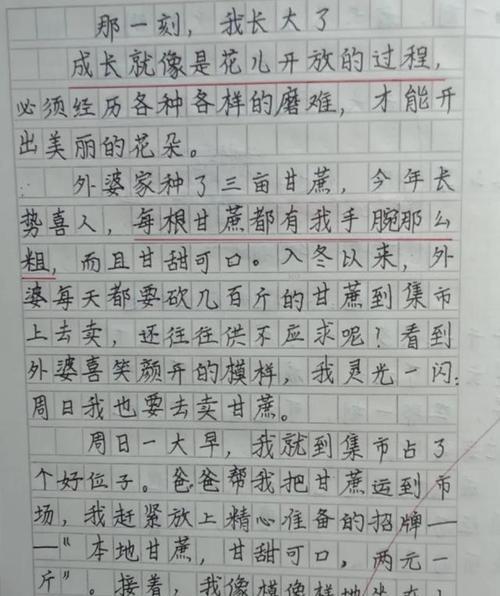 那一刻，我长大了
成长就像是花儿开放的过程，
必须经历各种各样的磨难，才能开
出美丽的花朵。
外婆家种了三亩甘蔗，今年长
势喜人，每根甘蔗都有我手腕那么
粗，而且甘甜可口。入冬以来，外
婆每天都要砍几百斤的甘蔗到集市
上去卖，还往往供不应求呢？看到
外婆喜笑颜开的模样，我灵光一闪：
周日我也要去卖甘蔗。
周日一大早，我就到集市占了
个好位子。爸爸帮我把甘蔗运到市
场，我赶紧放上精心准备的招牌—
—“本地甘蔗，甘甜可口，两元一
斤”。接着，我像模像样地坐在